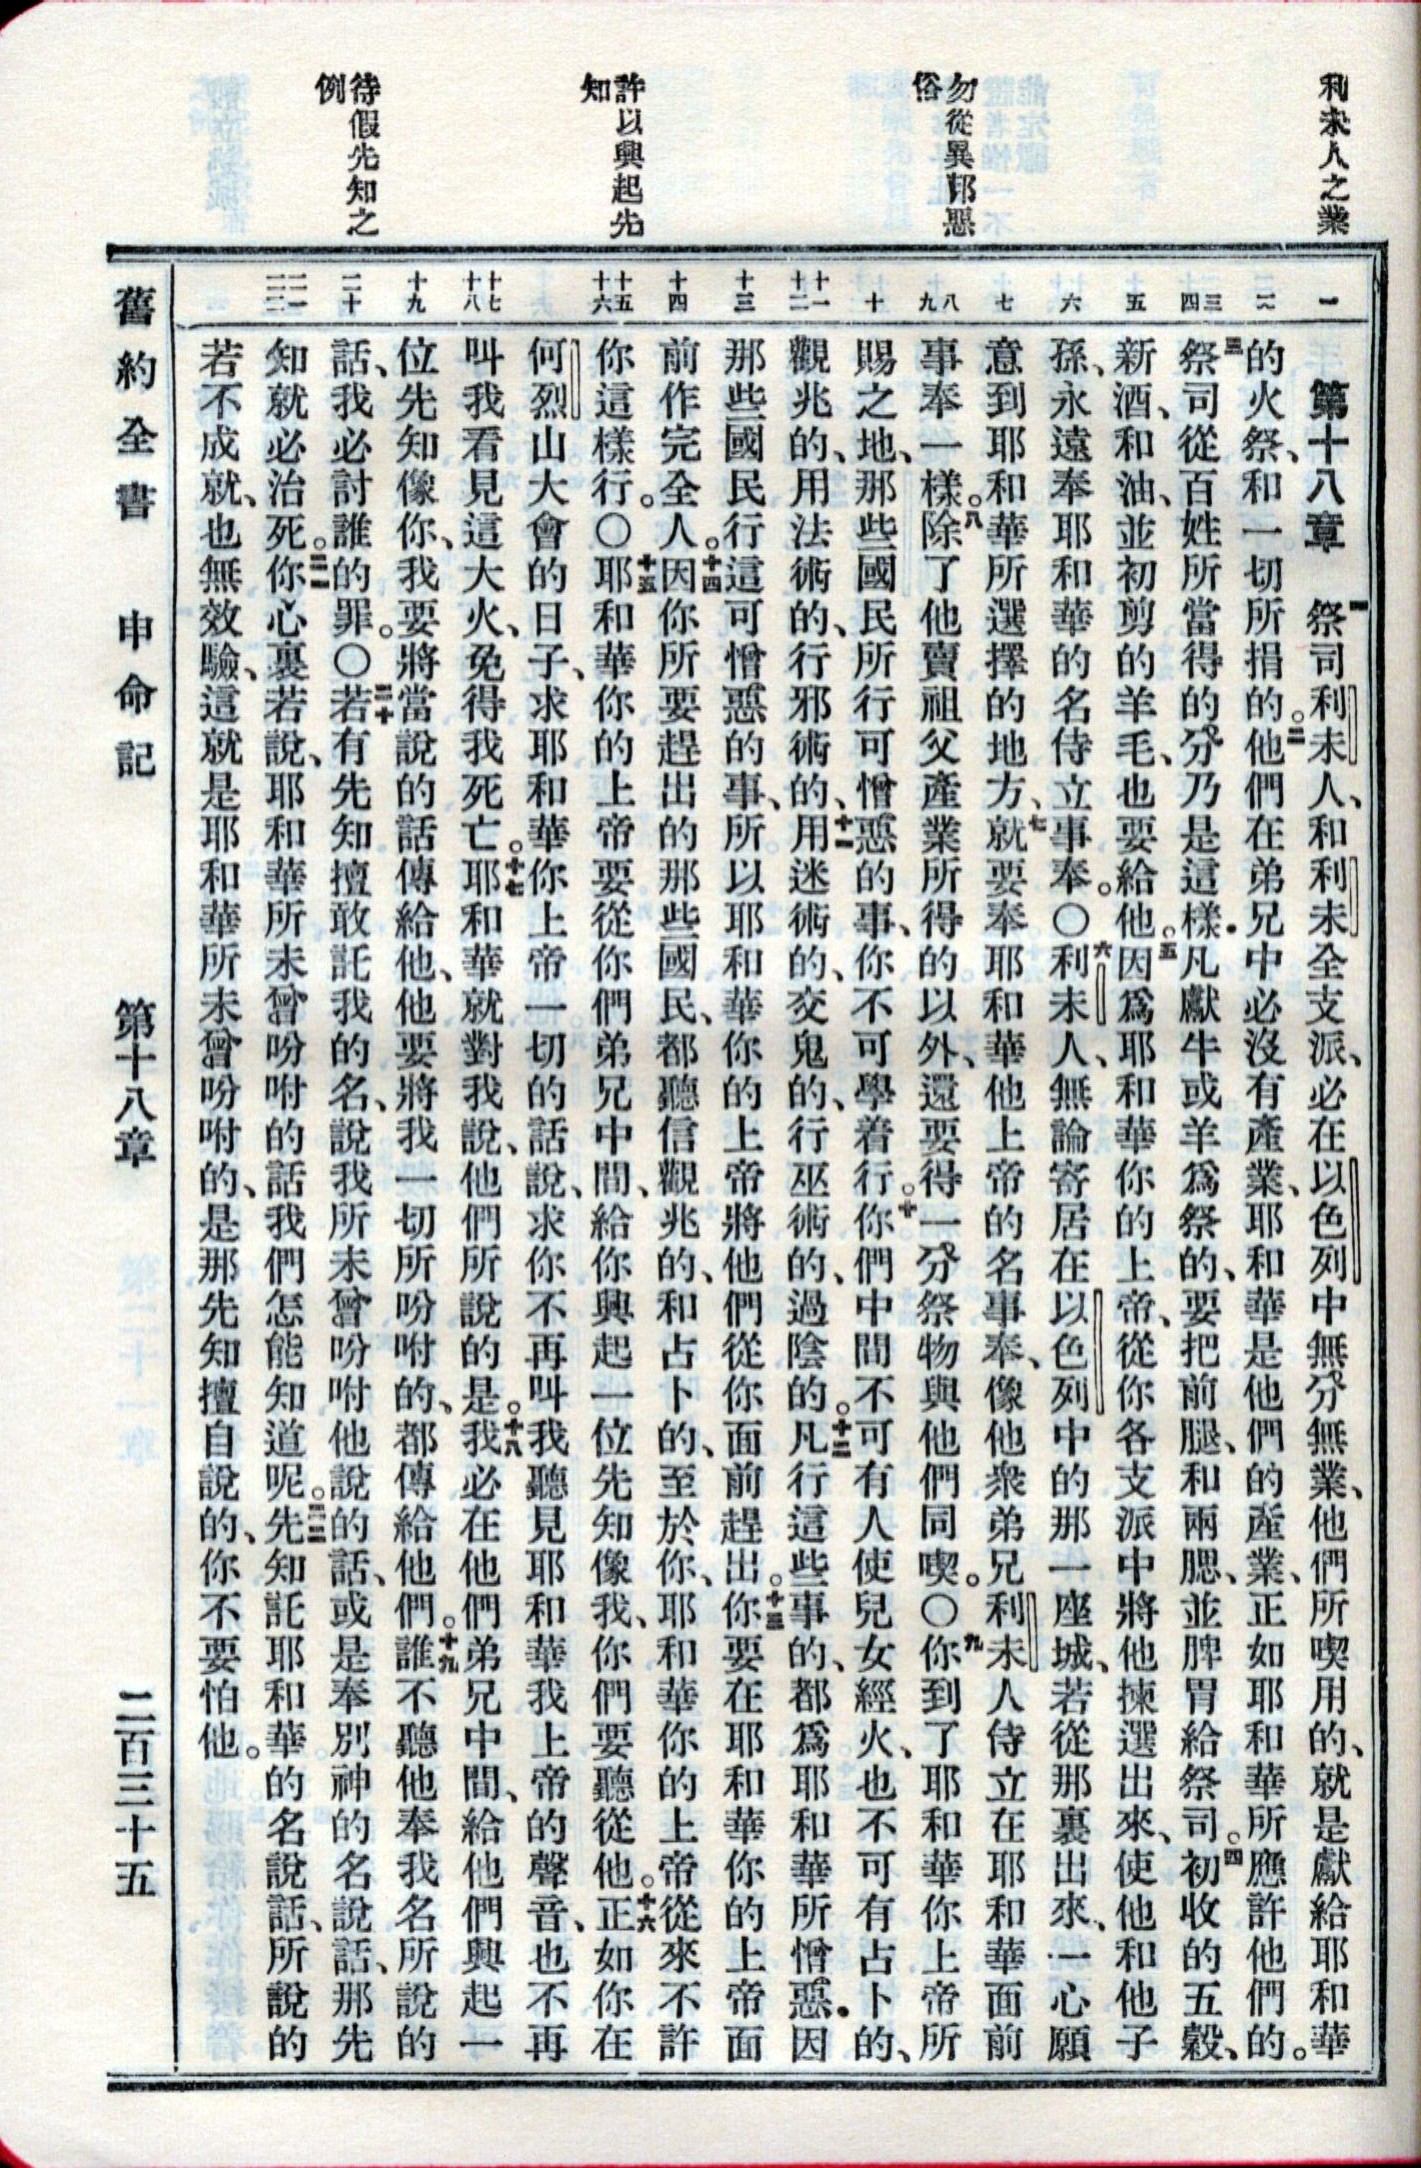 利未人之業
勿從異邦惡
俗
許以興起先
知
待假先知之
例
一
二
三
四
五
六
七
八
九
十
十一
十二
十三
十四
十五
十六
十七
十八
十九
二十
二一
二二
第十八章　一祭司利未人、和利未全支派、必在以色列中無分無業、他們所喫用的、就是獻給耶和華
的火祭、和一切所捐的。二他們在弟兄中必沒有產業、耶和華是他們的產業、正如耶和華所應許他們的。
三祭司從百姓所當得的分乃是這樣．凡獻牛或羊爲祭的、要把前腿、和兩腮、並脾胃給祭司。四初收的五穀、
新酒、和油、並初剪的羊毛、也要給他。五因爲耶和華你的上帝、從你各支派中將他揀選出來、使他和他子
孫、永遠奉耶和華的名侍立事奉。〇六利未人、無論寄居在以色列中的那一座城、若從那裏出來、一心願
意到耶和華所選擇的地方、七就要奉耶和華他上帝的名事奉、像他衆弟兄利未人侍立在耶和華面前
事奉一樣。八除了他賣祖父產業所得的以外、還要得一分祭物與他們同喫。〇九你到了耶和華你上帝所
賜之地、那些國民所行可憎惡的事、你不可學着行。十你們中間不可有人使兒女經火、也不可有占卜的、
觀兆的、用法術的、行邪術的、十一用迷術的、交鬼的、行巫術的、過陰的。十二凡行這些事的、都爲耶和華所憎惡．因
那些國民行這可憎惡的事、所以耶和華你的上帝將他們從你面前趕出。十三你要在耶和華你的上帝面
前作完全人。十四因你所要趕出的那些國民、都聽信觀兆的、和占卜的、至於你、耶和華你的上帝從來不許
你這樣行。〇十五耶和華你的上帝要從你們弟兄中間、給你興起一位先知像我、你們要聽從他。十六正如你在
何烈山大會的日子、求耶和華你上帝一切的話說、求你不再叫我聽見耶和華我上帝的聲音、也不再
叫我看見這大火、免得我死亡。十七耶和華就對我說、他們所說的是。十八我必在他們弟兄中間、給他們興起一
位先知像你、我要將當說的話傳給他、他要將我一切所吩咐的、都傳給他們。十九誰不聽他奉我名所說的
話、我必討誰的罪。〇二十若有先知擅敢託我的名、說我所未曾吩咐他說的話、或是奉別神的名說話、那先
知就必治死。二一你心裏若說、耶和華所未曾吩咐的話我們怎能知道呢。二二先知託耶和華的名說話、所說的
若不成就、也無效驗、這就是耶和華所未曾吩咐的、是那先知擅自說的、你不要怕他。
舊約全書　申命記　第十八章　二百三十五